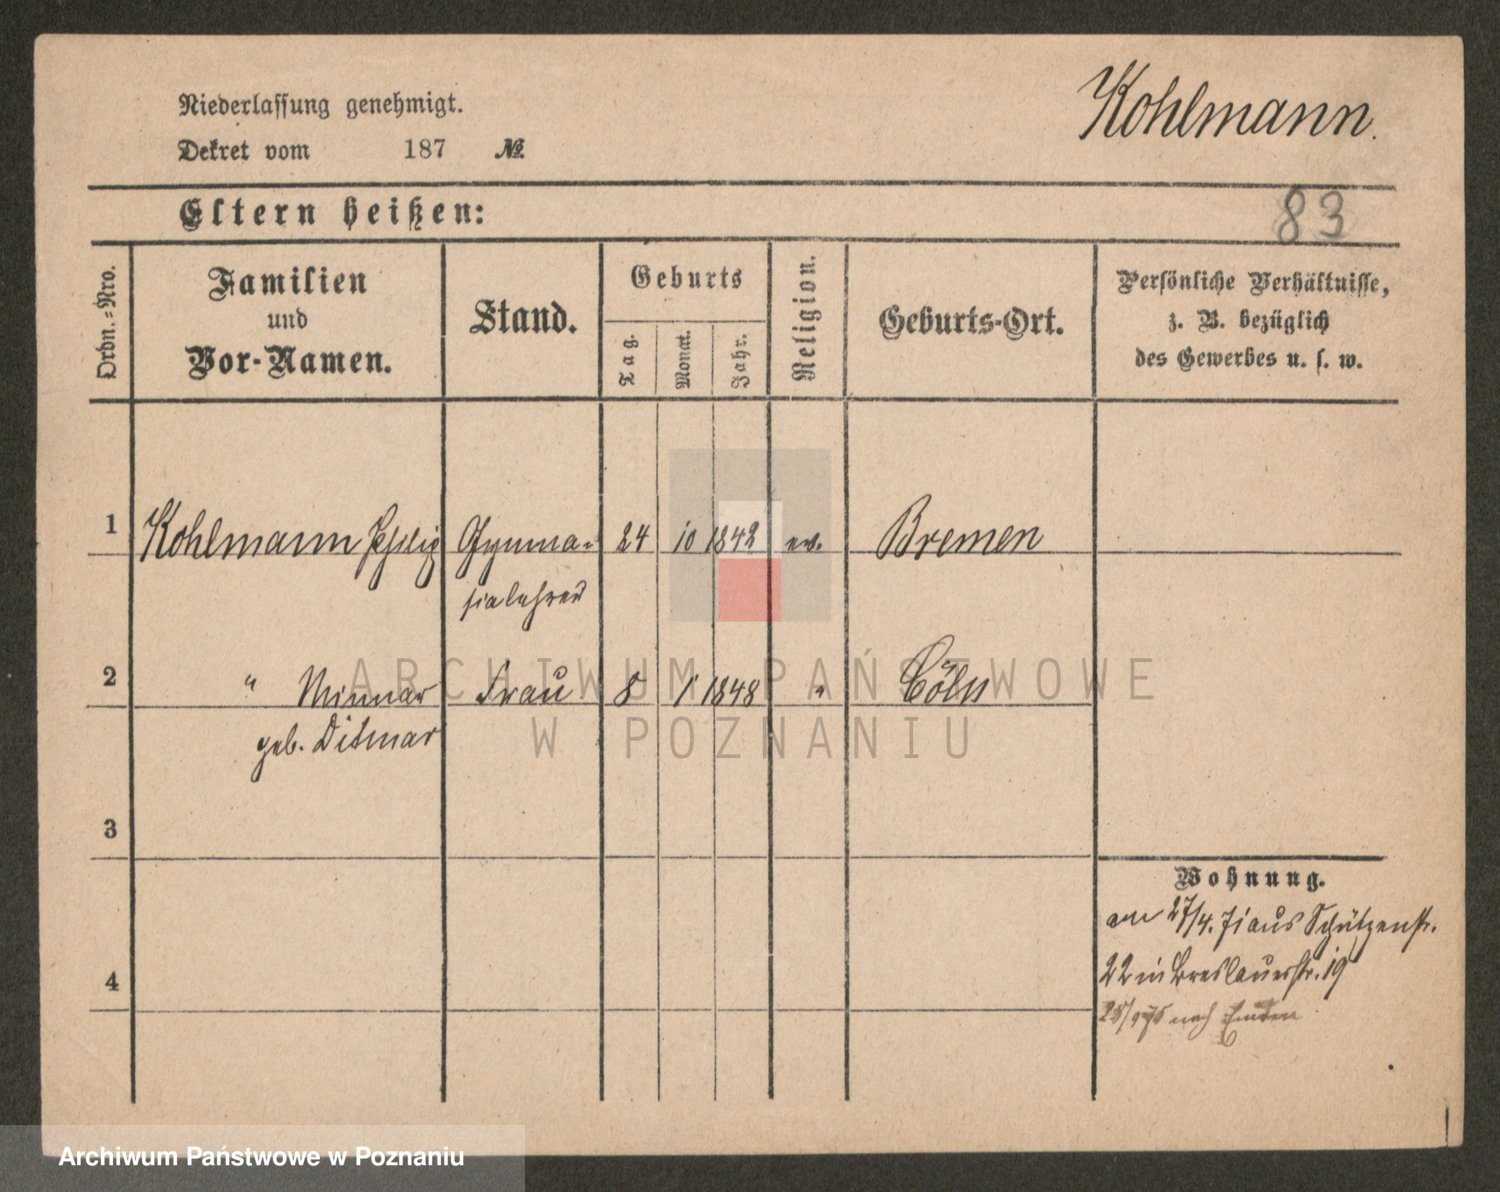 Niederlassung genehmigt.
Kohlmann.
Dekret vom 187 №
Eltern heißen:
83
Ordn.-Nro.
Familien
und
Vor-Namen.
Stand.
Geburts
Tag.
Monat.
Jahr.
Religion.
Geburts-Ort.
Persönliche Verhältnisse,
z. B. bezüglich
des Gewerbes u. s. w.
1 Kohlmann Gymna- 24 10 1842 ev. Bremen
sialehrer
2 " Frau 8 1 1848 " Cöln
geb. Ditmar
3
Wohnung.
4
22 in Breslauerstr. 19
nach Emden
ARCHIWUM PAŃSTWOWE
W POZNANIU
Archiwum Państwowe w Poznaniu